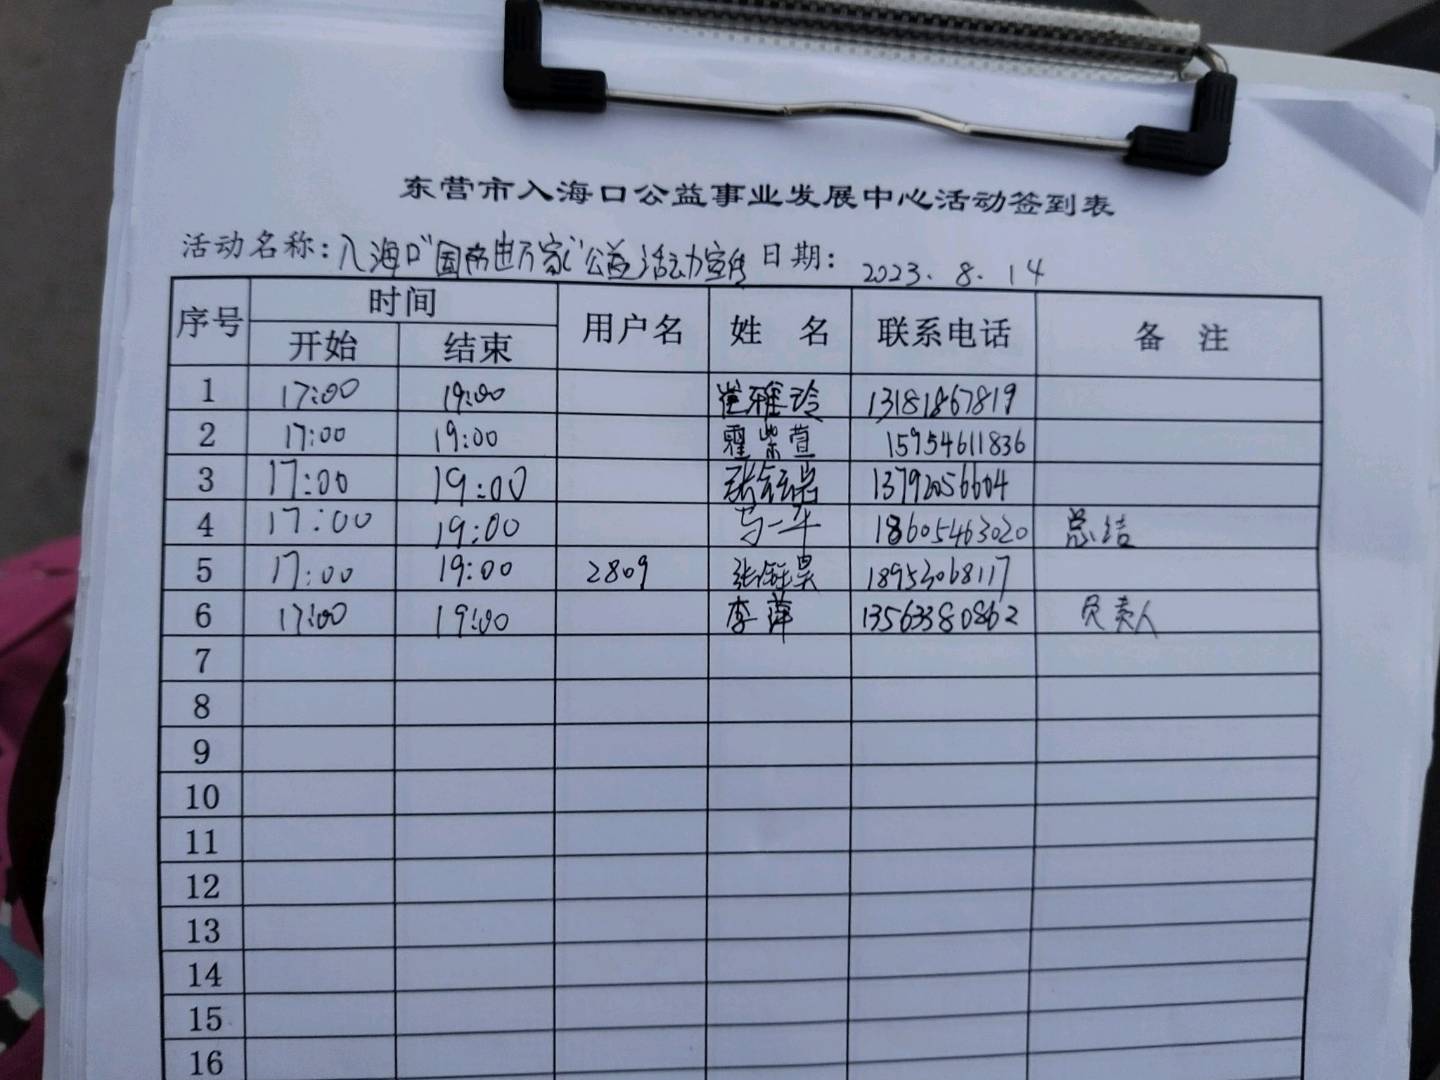 东营市入海口公益事业发展中心活动签到表
活动名称：入海口"国 进万家"公益活动宣传 日期：2023.8.14
序号 时间 用户名 姓 名 联系电话 备 注
开始 结束
1 17:00 19:00 崔雅玲 13181867819
2 17:00 19:00 霍紫萱 15954611836
3 17:00 19:00 张 13792056604
4 17:00 19:00 马一平 18605463020 总结
5 17:00 19:00 2809 张钰昊 18953068117
6 17:00 19:00 李萍 13563380862 负责人
7
8
9
10
11
12
13
14
15
16